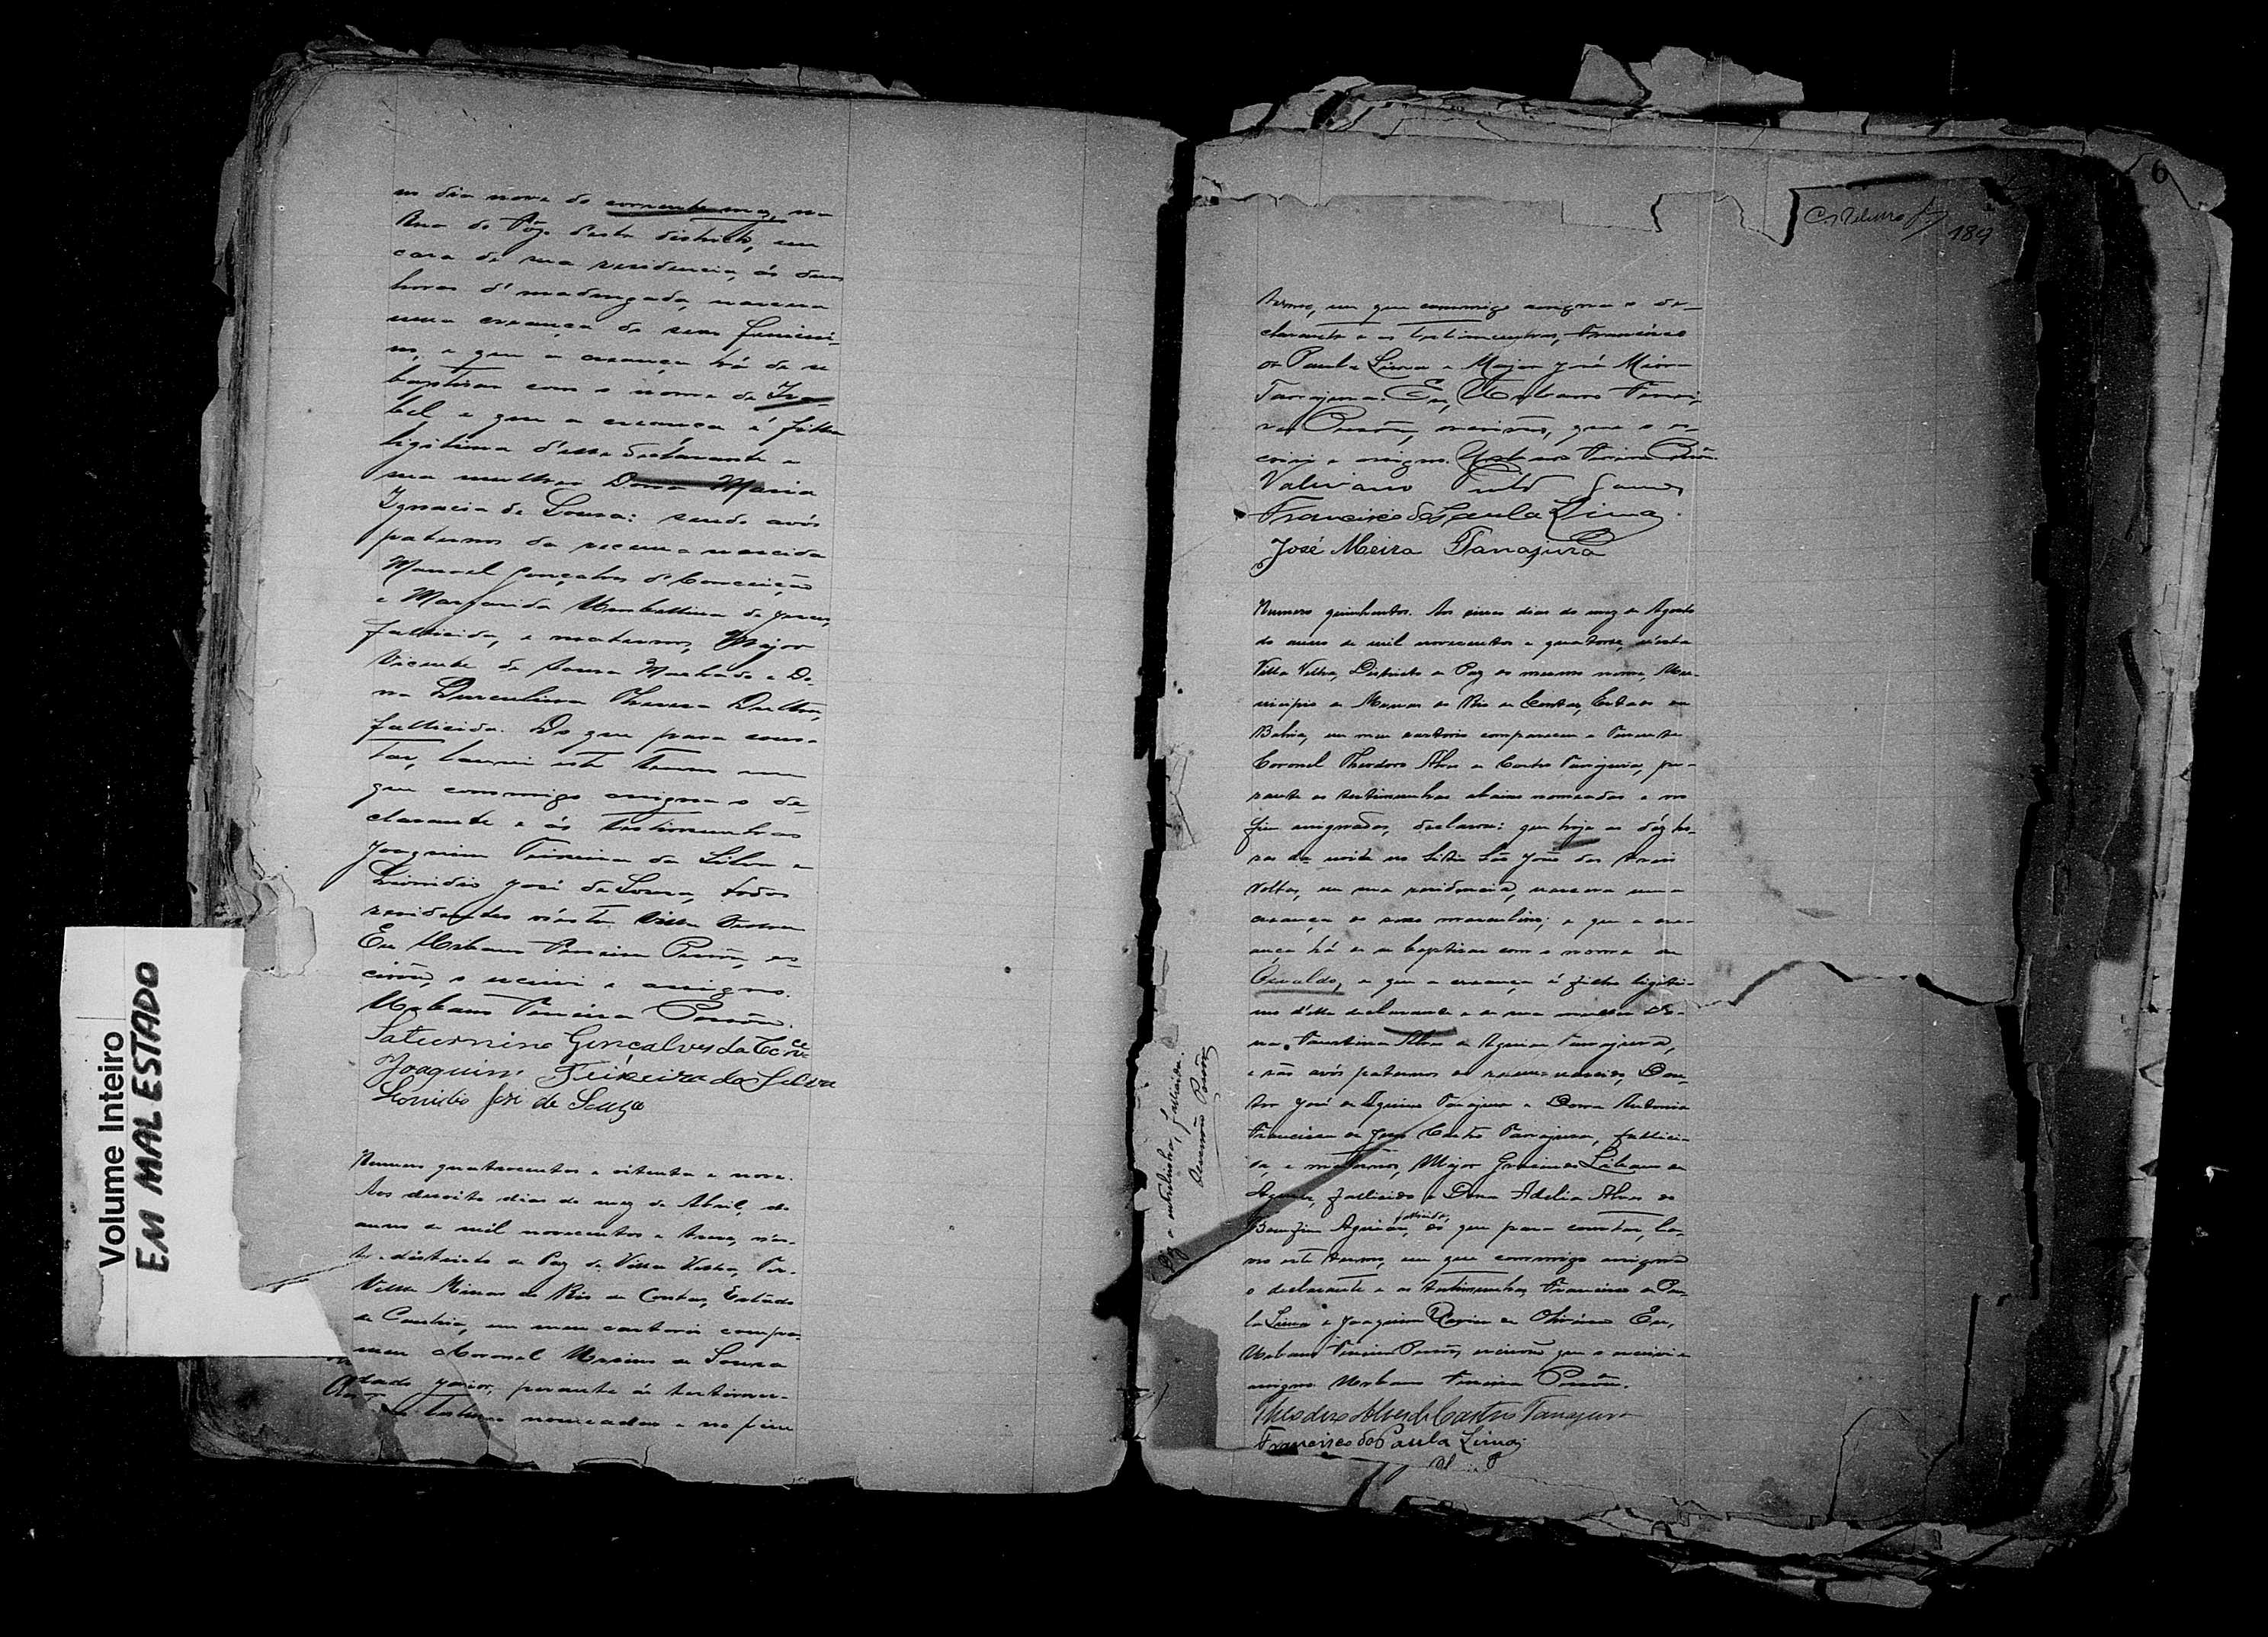 no dia nove do corrente mez, na
Rua do Fôgo desta districto, em
casa de sua residencia, ás duas
horas d'madrugada, nascera
uma creança de sexo femini-
no, e que a creança há de se
baptisar com o nome de Iza-
bel e que a creança é filha
ligitima d'elle declarante e
sua mulher Dona Maria
Ignacia de Souza: sendo avós
paternos da recem-nascida
Manoel Gonçalves d'Conceição
e Margarida Umbellina de Jesus,
fallicida, e maternos, Major
Vicente de Souza Machado e Do-
na Thereza Dultra,
fallicida. Do que para cons-
tar, lavrei este termo em
que commigo assigna o de-
clarante e ás testimunhas
Joaquim Teixeira da Silva e
Leonidio José de Souza, todos
residentes n'esta Villa Velha
Eu Urbano Pereira, es-
crivão, o escrivi e assigno.
Urbano
Saturnino Gonçalves da Conce
Joaquim Teixeira da Silva
Leonidio José de Souza
Numero quatrocentos e oitenta e nove.
Aos desoito dias do mez de Abril, do
anno de mil novecentos e treze, n'es-
te districto de Paz de Villa Velha, Ter-
Villa Minas do Rio de Contas, Estado
da Bahia, em meu cartorio compa-
receu o Coronel de Souza
perante ás testimu-
nomeadas e no fim
Volume Inteiro
EM MAL ESTADO
6
189
termo, em que commigo assigna o de-
clarante e as testimunhas, Francisco
de Paula Lima e Major José Meira
Tanajura. Eu, Urbano
escrivão, que o es-
crivi e assigno. Urbano
Valeriano Pinto
Francisco de Paula Lima.
José Meira Tanajura
Numero quinhentos. Aos cinco dias do mez de Agosto
do anno de mil novecentos e quatorze, n'esta
Villa Velha, Districto de Paz do mesmo nome, Mu-
nicipio de Minas do Rio de Contas, Estado da
Bahia, em meu cartorio compareceu o Tenente
Coronel Theodoro Alves de Castro Tanajura, pe-
rante as testimunhas abaixo nomeadas e no
fim assignadas, declarou: que hoje as déz ho-
ras da noite no Sitio São José das trais
Voltas, em sua residencia, nascera uma
creança do sexo masculino; e que a cre-
ança há de se baptisar com o nome de
Oswaldo, e que a creança é filho ligiti-
mo d'elle declarante e de sua mulher Do-
na Faustina Alves de Aguiar Tanajura,
e são avós paternos do recem-nascido, Dou-
tor José de Aquino Tanajura e Dona Antonia
Francisca de Jesus Castro Tanajura, fallici-
da, e maternos, Major Libano de
Aguiar, fallicido e Dona Adelia Alves do
Bomfim Aguiar, fallicida, do que para constar, la-
vro este termo, em que commigo assigna
o declarante e as testimunhas Francisco de Pau-
la Lima e Joaquim de Oliveira Eu,
Urbano, escrivão que o escrivi e
assigno. Urbano
Theodoro Alves de Castro Tanajura
Francisco de Paula Lima
Diz a entrelinha, fallicida.